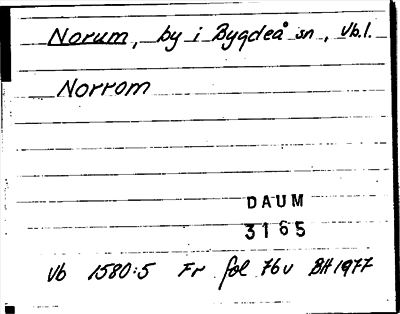 Norum, by i Bygdeå sn, Vb.l.
Norrom
DAUM
3165
Vb 1580:5 Fr fol 76v BH 1977